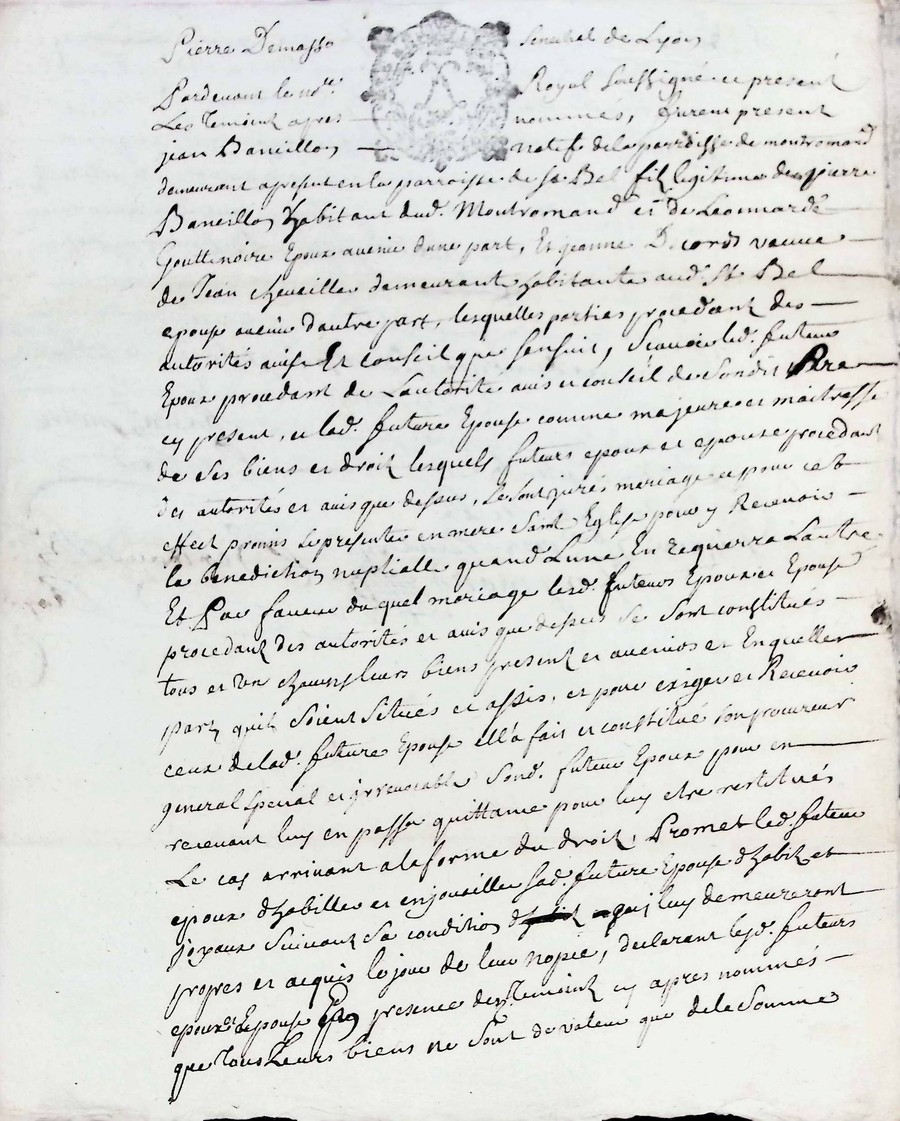 Pierre Demasso Senechal de Lyon
Pardevant le no.re Royal soussigné et present
Les Temoins apres nommés, furent present
jean Baneillon natif de la parroisse de montromand
demeurant apresent en la parroisse de st Bel fil legitime de pierre
Baneillon habitant dud. Montromand et de Leonnarde
Gouttenoire Epoux avenir dune part, Et jeanne veuve
de Jean demeurant habitante aud. st Bel
epouse avenir dautre part, lesquelles parties procedant des
autorités avis Et Conseil que sensuit, scavoir led. futeur
Epoux procedant de Lautorité avis et conseil de sondit Pere
cy present, et lad. future Epouse comme majeure et maitresse
de ses biens et droit lesquels futeurs epoux et epouse procedant
des autorités et avis que dessus, se sont jurés mariage et pour cet
effect promis se presenter en mere saint Eglise pour y Recevoir
la benediction nuptialle quand Lune En requerra Lautre
Et Par faveur du quel mariage lesd. futeurs Epoux et Epouse
procedant des autorités et avis que dessus se sont constitués
tous et un chacuns leurs biens present et avenirs et En quelle
part quils soient situés et assis, et pour exiger et Recevoir
ceux de lad. future Epouse ella fait et constitué son procureur
general special et irrevocable sond. futeur Epoux pour en
recevant luy en passer quittance pour luy etre restitués
Le cas arrivant a la forme du droit, Promet led. futeur
epoux dhabiller et enjouailler sad. future Epouse dhabit et
joyaux suivant sa condition qui luy demeureront
propres et acquis le jour de leur nopce, declarant lesd. futeurs
epoux et Epouse En presence des Temoint cy apres nommés
que Tous Leurs biens ne sont de valeur que de la somme